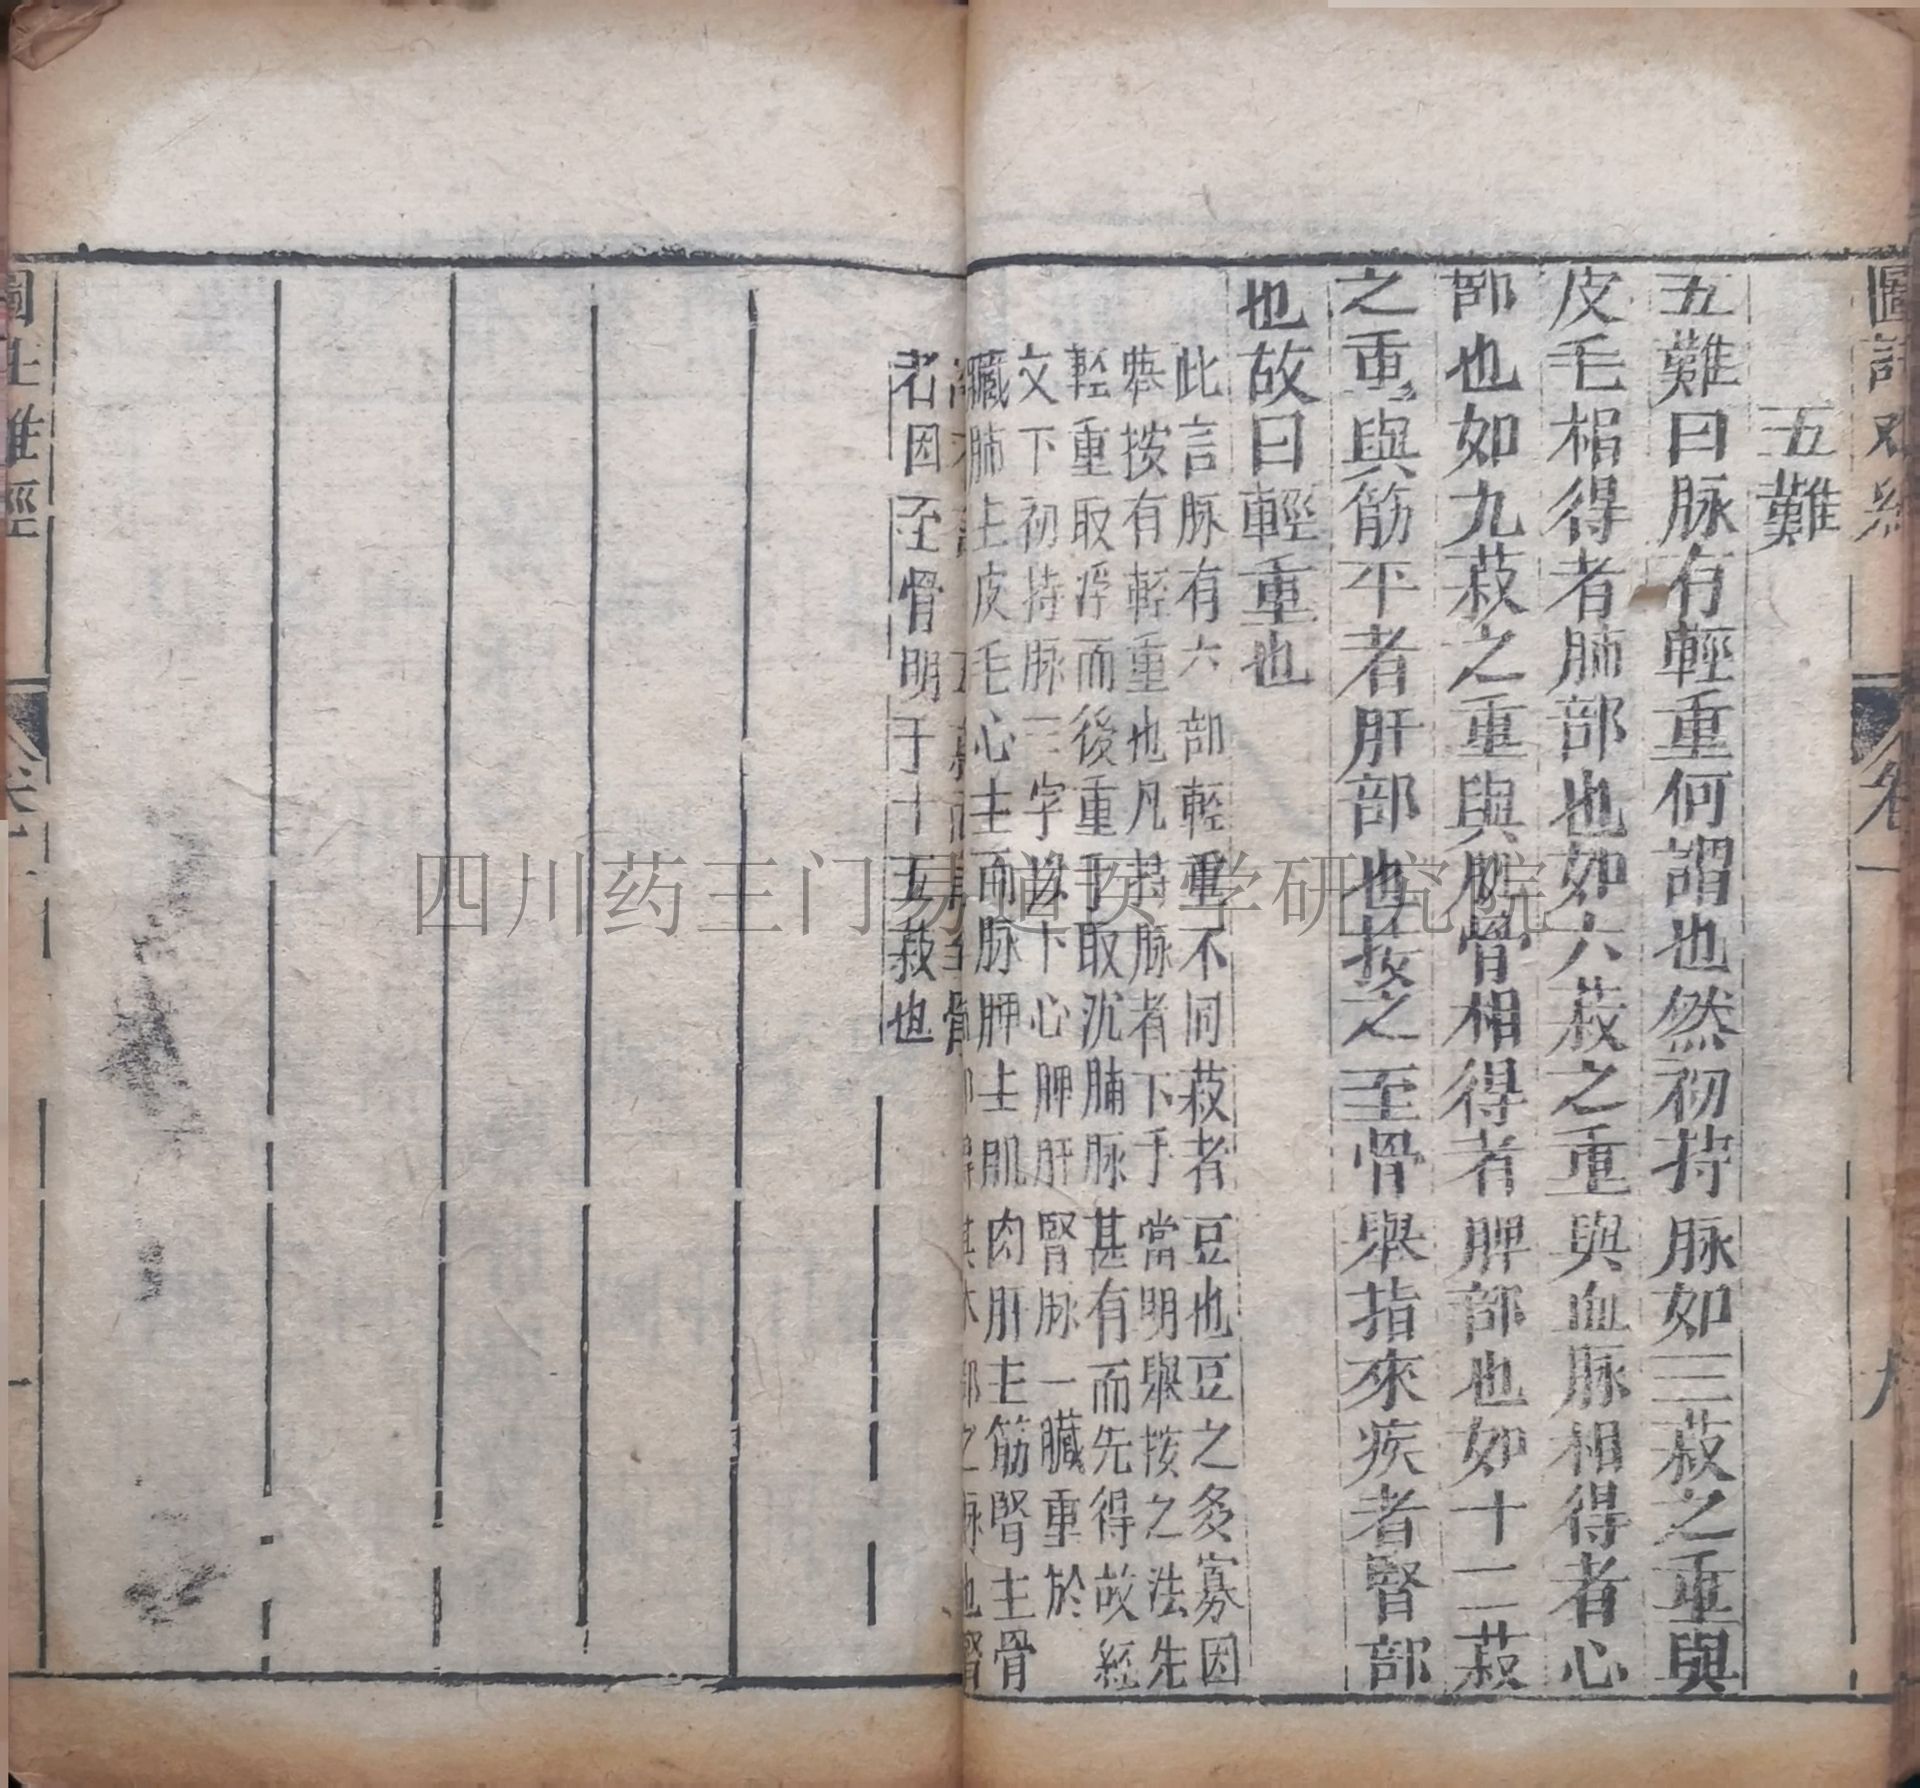 五難
五難曰脉有輕重何謂也然初持脉如三菽之重與
皮毛相得者肺部也如六菽之重與血脉相得者心
部也如九菽之重與肌骨相得者脾部也如十二菽
之重與筋平者肝部也按之至骨舉指來疾者腎部
也故曰輕重也
此言脉有六部輕重不同菽者豆也豆之多寡因
舉按有輕重也凡持脉者下手當明舉按之法先
輕重取浮而後重手取沉腩脉甚有而先得故經
文下初持脉三字以下心脾肝腎脉一臟重於
臟肺主皮毛心主而脉脾主肌肉肝主筋腎主骨
者因至骨明于十五菽也
圖註難經
卷一
四川药三门易道医学研究院